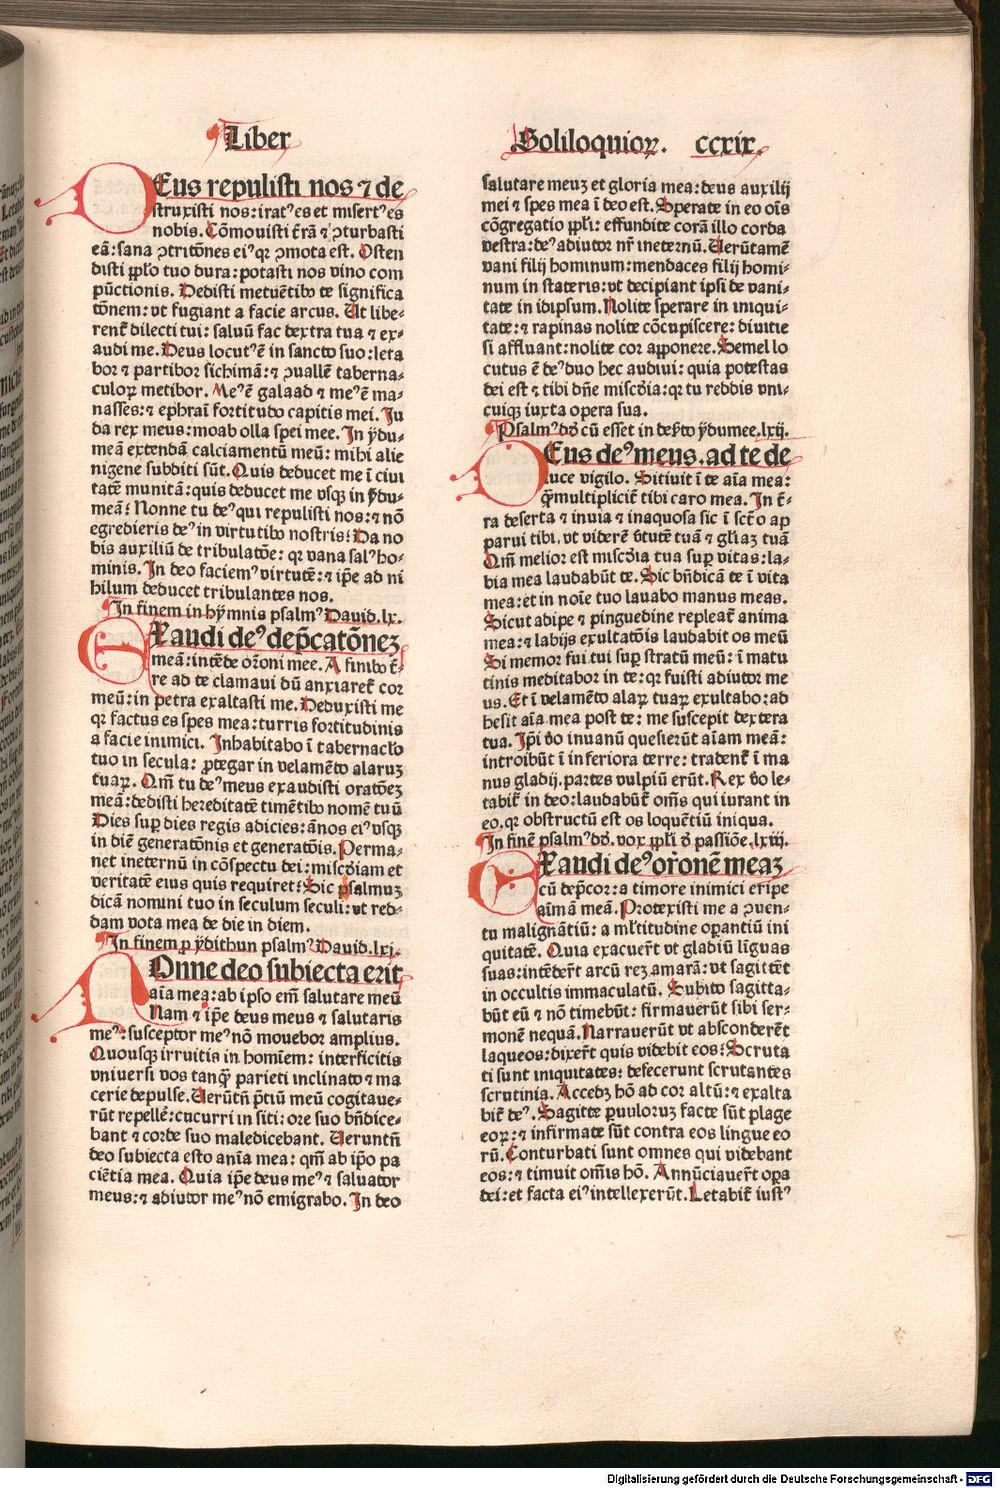 Liber
Soliloquioꝝ. ccxix.
DEus repulisti nos ⁊ de
struxisti nos: iratꝰ es et misertꝰ es
nobis. Cōmouisti t̄rā ⁊ ꝯturbasti
eā: sana ꝯtritōnes eiꝰ qꝛ ꝯmota est. Osten
disti pplo tuo dura: potasti nos vino com
pūctionis. Dedisti metuētibꝰ te significa
tōnem: vt fugiant a facie arcus. Ut libe⸗
rent̄ dilecti tui: saluū fac dextra tua ⁊ ex⸗
audi me. Deus locutꝰ ē in sancto suo: leta
bor ⁊ partibor sichimā: ⁊ ꝯuallē taberna⸗
culoꝝ metibor. Meꝰ ē galaad ⁊ meꝰ ē ma⸗
nasses: ⁊ ephraī fortitudo capitis mei. Ju
da rex meus: moab olla spei mee. In ydu⸗
meā extendā calciamentū meū: mihi alie
nigene subditi sūt. Quis deducet me ī ciui
tatē munitā: quis deducet me vsqꝫ in ydu⸗
meā? Nonne tu deꝰ qui repulisti nos: ⁊ nō
egredieris deꝰ in virtutibꝰ nostris? Da no
bis auxiliū de tribulatōe: qꝛ vana salꝰ ho⸗
minis. In deo faciemꝰ virtutē: ⁊ ip̄e ad ni
hilum deducet tribulantes nos.
In finem in hymnis psalmꝰ Dauid. lx.
EXaudi deꝰ dep̄catōneꝫ
meā: intēde or̄oni mee. A finibꝰ t̄⸗
re ad te clamaui dū anxiaret̄ cor
meū: in petra exaltasti me. Deduxisti me
qꝛ factus es spes mea: turris fortitudinis
a facie inimici. Inhabitabo ī tabernaclo
tuo in secula: ꝓtegar in velamēto alaruꝫ
tuaꝝ. Qm̄ tu deꝰ meus exaudisti oratōeꝫ
meā: dedisti hereditatē timētibꝰ nomē tuū
Dies sup dies regis adicies: ānos eiꝰ vsqꝫ
in diē generatōnis et generatōis. Perma⸗
net ineternū in cōspectu dei: miscdiam et
veritatē eius quis requiret? Sic psalmuꝫ
dicā nomini tuo in seculum seculi: vt red⸗
dam vota mea de die in diem.
In finem ꝓ ydithun psalmꝰ Dauid. lxj.
NOnne deo subiecta erit
aīa mea: ab ipso em̄ salutare meū
Nam ⁊ ip̄e deus meus ⁊ salutaris
meꝰ: susceptor meꝰ nō mouebor amplius.
Quousqꝫ irruitis in homīem: interficitis
vniuersi vos tanqꝫ parieti inclinato ⁊ ma
cerie depulse. Uerūtn̄ p̄tiū meū cogitaue⸗
rūt repellē: cucurri in siti: ore suo bn̄dice⸗
bant ⁊ corde suo maledicebant. Ueruntn̄
deo subiecta esto anīa mea: qm̄ ab ip̄o pa
ciētia mea. Quia ip̄e deus meꝰ ⁊ saluator
meus: ⁊ adiutor meꝰ nō emigrabo. In deo
salutare meuꝫ et gloria mea: deus auxilij
mei ⁊ spes mea ī deo est. Sperate in eo oīs
cōgregatio ppli: effundite corā illo corda
vestra: deꝰ adiutor nr̄ ineternū. Uerūtamē
vani filij hominum: mendaces filij homi⸗
num in stateris: vt decipiant ipsi de vani⸗
tate in idipsum. Nolite sperare in iniqui⸗
tate: ⁊ rapinas nolite cōcupiscere: diuitie
si affluant: nolite cor apponere. Semel lo
cutus ē deꝰ duo hec audiui: quia potestas
dei est ⁊ tibi dn̄e miscdia: qꝛ tu reddis vni⸗
cuiqꝫ iuxta opera sua.
Psalmꝰ dd̄ cū esset in dep̄to ydumee. lxij.
DEus deꝰ meus. ad te de
luce vigilo. Sitiuit ī te aīa mea:
qꝫ multiplicit̄ tibi caro mea. In t̄⸗
ra deserta ⁊ inuia ⁊ inaquosa sic ī sct̄o ap
parui tibi. vt viderē v̄tutē tuā ⁊ gl̄iaꝫ tuā
Qm̄ melior est miscdia tua sup vitas: la⸗
bia mea laudabūt te. Sic bn̄dicā te ī vita
mea: et in noīe tuo lauabo manus meas.
Sicut adipe ⁊ pinguedine repleat̄ anima
mea: ⁊ labijs exultatōis laudabit os meū
Si memor fui tui sup stratū meū: ī matu
tinis meditabor in te: qꝛ fuisti adiutor me
us. Et ī velamēto alaꝝ tuaꝝ exultabo: ad
hesit aīa mea post te: me suscepit dextera
tua. Ip̄i v̄o inuanū quesierūt aīam meā:
introibūt ī inferiora terre: tradent̄ ī ma
nus gladij. partes vulpiū erūt. Rex v̄o le⸗
tabit̄ in deo: laudabūt̄ oms̄ qui iurant in
eo. qꝛ obstructū est os loquētiū iniqua.
In finē psalmꝰ dd̄. vox ppli d̄ passiōe. lxiij.
EXaudi deꝰ or̄onē meaꝫ
cū dep̄cor: a timore inimici eripe
aīmā meā. Protexisti me a ꝯuen⸗
tu malignātiū: a ml̄titudine oꝑantiū ini
quitatē. Quia exacuer̄t vt gladiū līguas
suas: intēder̄t arcū reꝫ amarā: vt sagittēt
in occultis immaculatū. Subito sagitta⸗
būt eū ⁊ nō timebūt: firmauerūt sibi ser⸗
monē nequā. Narrauerūt vt absconderēt
laqueos: dixer̄t quis videbit eos? Scruta
ti sunt iniquitates: defecerunt scrutantes
scrutinia. Accedꝫ hō ad cor altū: ⁊ exalta
bit̄ deꝰ. Sagitte paruuloruꝫ facte sūt plage
eoꝝ: ⁊ infirmate sūt contra eos lingue eo
rū. Conturbati sunt omnes qui videbant
eos: ⁊ timuit om̄is hō. Annūciauer̄t oꝑa
dei: et facta eiꝰ intellexerūt. Letabit̄ iustꝰ
Digitalisierung gefördert durch die Deutsche Forschungsgemeinschaft - DFG